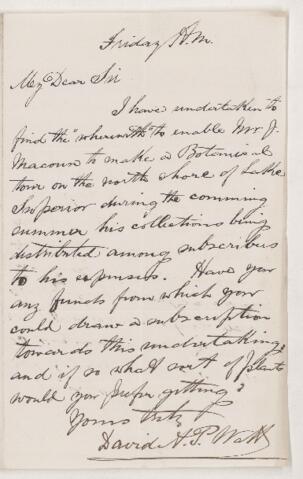 Friday A.M.
My Dear Sir
I have undertaken to
find the "wherewith" to enable Mr J.
Macoun to make a Botanical
tour on the north shore of Lake
Superior during the comming
summer his collections being
distributed among subscribers
to his expenses. Have you
any funds from which you
could draw a subscription
towards this undertaking,
and if so what sort of plants
would you prefer getting?
Yours truly
David A. P. Watt